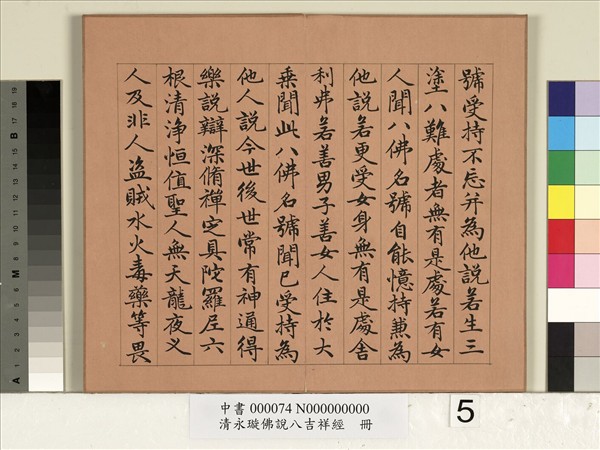 號受持不忘并為他說若生三
塗八難處者無有是處若有女
人聞八佛名號自能憶持兼為
他說若更受女身無有是處舍
利弗若善男子善女人住於大
乘聞此八佛名號聞已受持為
他人說今世後世常有神通得
樂說辯深脩禪定具陀羅尼六
根清淨恒值聖人無天龍夜叉
人及非人盜賊水火毒藥等畏
中書 000074 N000000000
清永璇佛說八吉祥經 冊
5
A 1 2 3 4 5 6 M 8 9 10 11 12 13 14 15 B 17 18 19